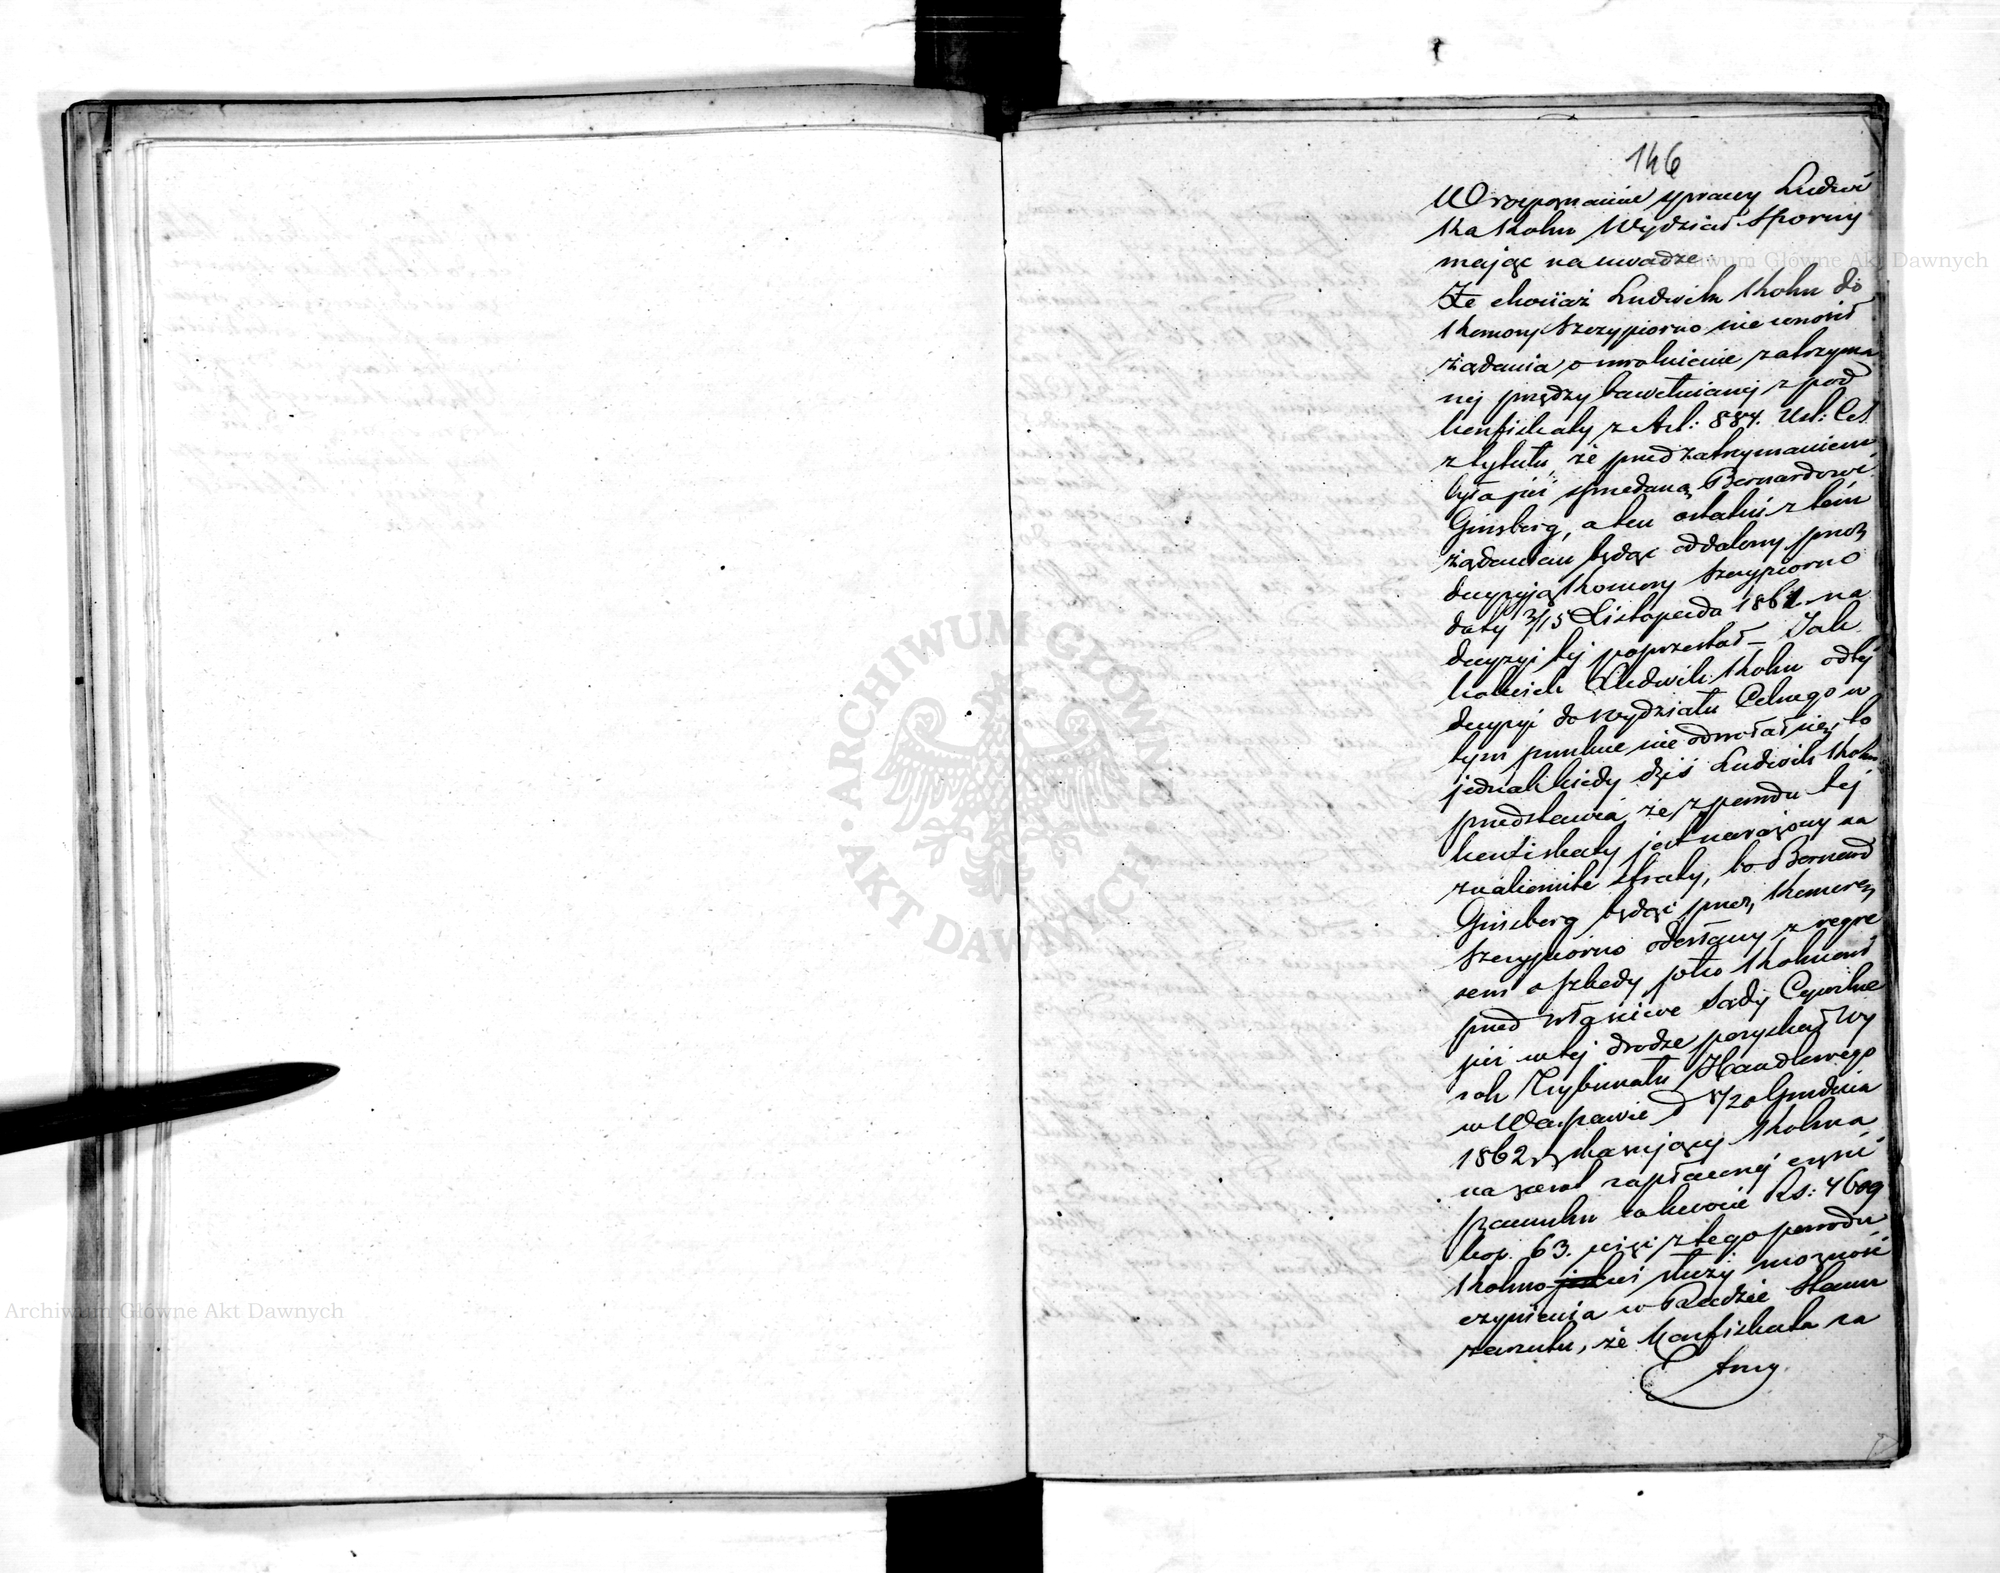 146
W rozpoznaniu sprawy Ludwi
ka Kohn Wydział Sporny
mając na uwadze
Że chociaż Ludwik Kohn do
Komory Szczypiorno nie wnosił
żądania o uwolnienie zatrzyma
nej przędzy bawełnianej z pod
konfiskaty z Art: 884. Ust: Cel
z tytułu, że przed zatrzymaniem
była już sprzedaną Bernardowi
Ginsberg, a ten ostatni z tem
żądaniem będąc oddalony przez
decyzyją Komory Szczypiorno
daty 3/15 Listopada 1861 na
decyzyi tej poprzestał – Jak
kolwiek Ludwik Kohn od tej
decyzyi do Wydziału Celnego w
tym punkcie nie odwołał się, to
jednak kiedy dziś Ludwik Kohn
przedstawia, że z powodu tej
konfiskaty jest narażony na
znakomite straty, bo Bernard
Ginsberg będąc przez Komorę
Szczypiorno odesłany z regre
sem o szkody do Kohna
przed właściwe Sądy Cywilne
już w tej drodze pozyskał Wy
rok Trybunału Handlowego
w Warszawie d 8/20 Grudnia
1862 r. skazujący Kohna
na zwrot zapłaconej części
szacunku w kwocie Rs: 4609
kop. 63. więc z tego powodu
Kohnowi służy możność
czynienia w Radzie Stanu
zarzutu, że Konfiskata za
trzy
Archiwum Główne Akt Dawnych
Archiwum Główne Akt Dawnych
ARCHIWUM GŁÓWNE
AKT DAWNYCH